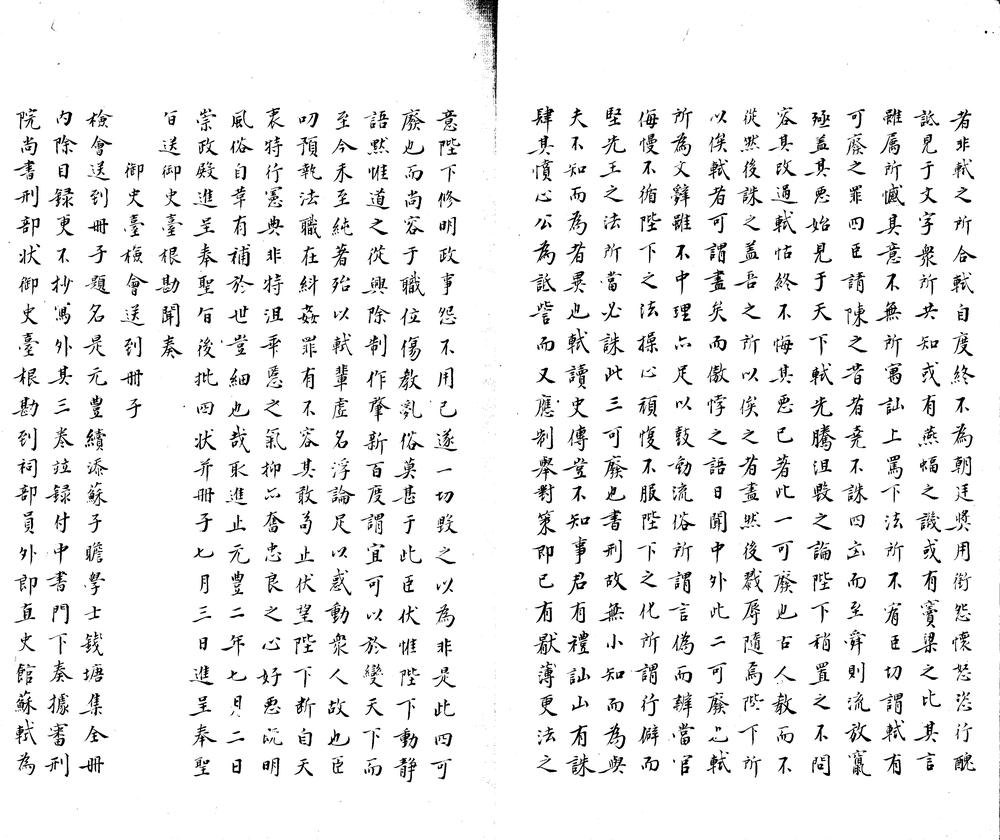 者非軾之所合軾自度終不為朝廷奬用銜怨懷怒恣行醜
詆見于文字衆所共知或有燕蝠之譏或有竇梁之比其言
雖屬所憾其意不無所寓訕上罵下法所不宥臣切謂軾有
可廢之罪四臣請陳之昔者堯不誅四㓙而至舜則流放竄
殛蓋其惡始見于天下軾先騰沮毀之論陛下稍置之不問
容其改過軾怙終不悔其惡已著此一可廢也古人教而不
從然後誅之蓋吾之所以俟之者盡然後戮辱隨焉陛下所
以俟軾者可謂盡矣而傲悖之語日聞中外此二可廢也軾
所為文辭雖不中理亦足以鼓動流俗所謂言偽而辯當官
侮慢不循陛下之法操心頑愎不服陛下之化所謂行僻而
堅先王之法所當必誅此三可廢也書刑故無小知而為與
夫不知而為者異也軾讀史傳豈不知事君有禮訕山有誅
肆其憤心公為詆訾而又應制舉對策即已有厭薄更法之
意陛下修明政事怨不用己遂一切毀之以為非是此四可
廢也而尚容于職位傷教亂俗莫甚于此臣伏惟陛下動靜
語默惟道之從興除制作肇新百度謂宜可以於變天下而
至今未至純著殆以軾輩虛名浮論足以惑動衆人故也臣
叨預執法職在糾姦罪有不容其敢茍止伏望陛下斷自天
衷特行憲典非特沮乖慝之氣抑亦奮忠良之心好惡旣明
風俗自革有補於世豈細也哉取進止元豊二年七月二日
崇政殿進呈奉聖旨後批四状并冊子七月三日進呈奉聖
旨送御史臺根勘聞奏
御史臺檢會送到冊子
檢會送到冊子題名是元豊續添蘇子瞻學士錢塘集全冊
内除目録更不抄寫外其三卷並録付中書門下奏據審刑
院尚書刑部状御史臺根勘到祠部員外郎直史館蘇軾為